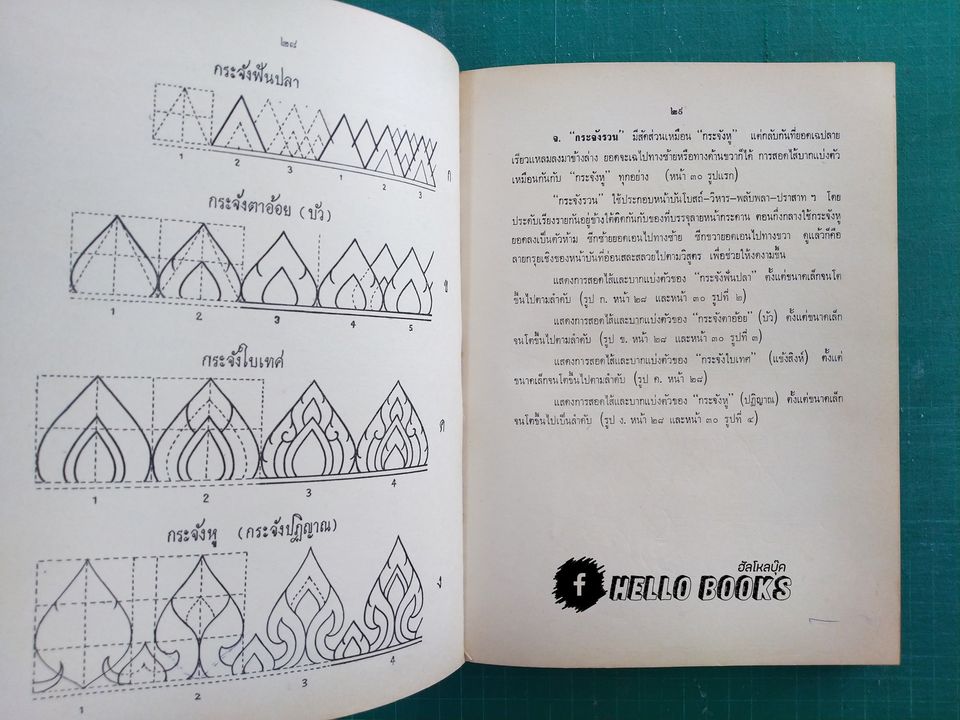 ๒๘
กระจังฟันปลา
1 2 3 1 2 3
ก
กระจังตาอ้อย (บัว)
1 2 3 4 5
ข
กระจังใบเทศ
1 2 3 4
ค
กระจังหู (กระจังปฏิญาณ)
1 2 3 4
ง
๒๙
จ. "กระจังรวน" มีสัดส่วนเหมือน "กระจังหู" แต่กลับกันที่ยอดเฉปลาย
เรียวแหลมลงมาข้างล่าง ยอดจะเฉไปทางซ้ายหรือทางด้านขวาก็ได้ การสอดไส้บากแบ่งตัว
เหมือนกันกับ "กระจังหู" ทุกอย่าง (หน้า ๓๐ รูปแรก)
"กระจังรวน" ใช้ประกอบหน้าบันโบสถ์-วิหาร-พลับพลา-ปราสาท ฯ โดย
ประดับเรียงรายกันอยู่ข้างใต้ติดกันกับของที่บรรจุลายหน้ากระดาน ตอนกึ่งกลางใช้กระจังหู
ยอดลงเป็นตัวห้าม ซีกซ้ายยอดเอนไปทางซ้าย ซีกขวายอดเอนไปทางขวา ดูแล้วก็คือ
ลายกรุยเชิงของหน้าบันที่อ่อนสละสลวยไปตามวิสูตร เพื่อช่วยให้งดงามขึ้น
แสดงการสอดไส้และบากแบ่งตัวของ "กระจังฟันปลา" ตั้งแต่ขนาดเล็กจนโต
ขึ้นไปตามลำดับ (รูป ก. หน้า ๒๘ และหน้า ๓๐ รูปที่ ๒)
แสดงการสอดไส้และบากแบ่งตัวของ "กระจังตาอ้อย" (บัว) ตั้งแต่ขนาดเล็ก
จนโตขึ้นไปตามลำดับ (รูป ข. หน้า ๒๘ และหน้า ๓๐ รูปที่ ๓)
แสดงการสอดไส้และบากแบ่งตัวของ "กระจังใบเทศ" (แข้งสิงห์) ตั้งแต่
ขนาดเล็กจนโตขึ้นไปตามลำดับ (รูป ค. หน้า ๒๘)
แสดงการสอดไส้และบากแบ่งตัวของ "กระจังหู" (ปฏิญาณ) ตั้งแต่ขนาดเล็ก
จนโตขึ้นไปเป็นลำดับ (รูป ง. หน้า ๒๘ และหน้า ๓๐ รูปที่ ๔)
ฮัลโหลบุ๊ค
f HELLO BOOKS